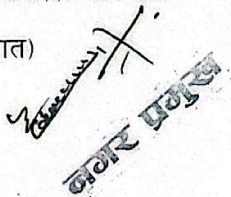 ात)
नगर प्रमुख